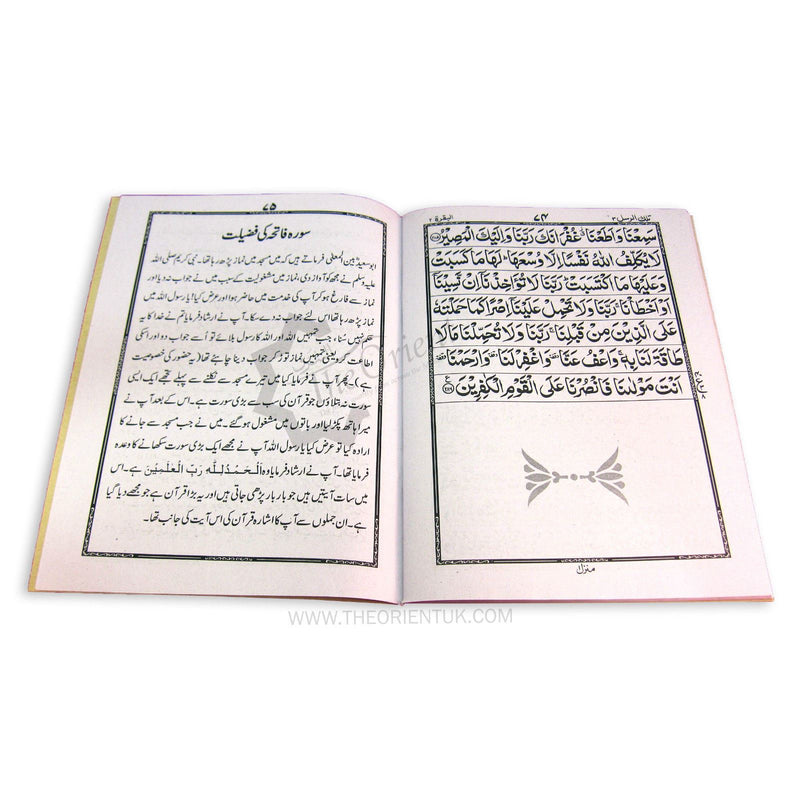 تلك الرسل ٣
٧٤
البقرة ٢
سَمِعْنَا وَاَطَعْنَا غُفْرَانَكَ رَبَّنَا وَاِلَيْكَ الْمَصِيْرُ ﴿٢٨٥﴾
لَا يُكَلِّفُ اللّٰهُ نَفْسًا اِلَّا وُسْعَهَا لَهَا مَا كَسَبَتْ
وَعَلَيْهَا مَا اكْتَسَبَتْ رَبَّنَا لَا تُؤَاخِذْنَا اِنْ نَّسِيْنَا
اَوْ اَخْطَاْنَا رَبَّنَا وَلَا تَحْمِلْ عَلَيْنَا اِصْرًا كَمَا حَمَلْتَهٗ
عَلَى الَّذِيْنَ مِنْ قَبْلِنَا رَبَّنَا وَلَا تُحَمِّلْنَا مَا لَا
طَاقَةَ لَنَا بِهٖ وَاعْفُ عَنَّا وَاغْفِرْ لَنَا وَارْحَمْنَا
اَنْتَ مَوْلٰىنَا فَانْصُرْنَا عَلَى الْقَوْمِ الْكٰفِرِيْنَ ﴿٢٨٦﴾
منزل
٧٥
سورہ فاتحہ کی فضیلت
ابوسعید بین المعلیٰ فرماتے ہیں کہ میں مسجد میں نماز پڑھ رہا تھا۔ نبی کریم صلی اللہ
علیہ وسلم نے مجھ کو آواز دی، نماز میں مشغولیت کے سبب میں نے جواب نہ دیا اور
نماز سے فارغ ہو کر آپ کی خدمت میں حاضر ہوا اور عرض کیا! یا رسول اللہ میں
نماز پڑھ رہا تھا اس لئے جواب نہ دے سکا۔ آپ نے ارشاد فرمایا تم نے خدا کا یہ
حکم نہیں سُنا، جب تمہیں اللہ اور اللہ کا رسول بلائے تو اُسے جواب دو اور اسکی
اطاعت کرو یعنی تمہیں نماز توڑ کر جواب دینا چاہئے تھا (یہ حضور ہی کی خصوصیت
ہے)۔ پھر آپ نے فرمایا کیا میں تیرے مسجد سے نکلنے سے پہلے تجھے ایک ایسی
سورت نہ بتلاؤں جو قرآن کی سب سے بڑی سورت ہے۔ اس کے بعد آپ نے
میرا ہاتھ پکڑ لیا اور باتوں میں مشغول ہو گئے۔ میں نے جب مسجد سے جانے کا
ارادہ کیا تو عرض کیا یا رسول اللہ آپ نے مجھے ایک بڑی سورت سکھانے کا وعدہ
فرمایا تھا۔ آپ نے ارشاد فرمایا وہ اَلْحَمْدُ لِلّٰهِ رَبِّ الْعٰلَمِيْنَ ہے۔ اس
میں سات آیتیں ہیں جو بار بار پڑھی جاتی ہیں اور یہ بڑا قرآن ہے جو مجھے دیا گیا
ہے۔ ان جملوں سے آپ کا اشارہ قرآن کی اس آیت کی جانب تھا۔
The Orient
WWW.THEORIENTUK.COM